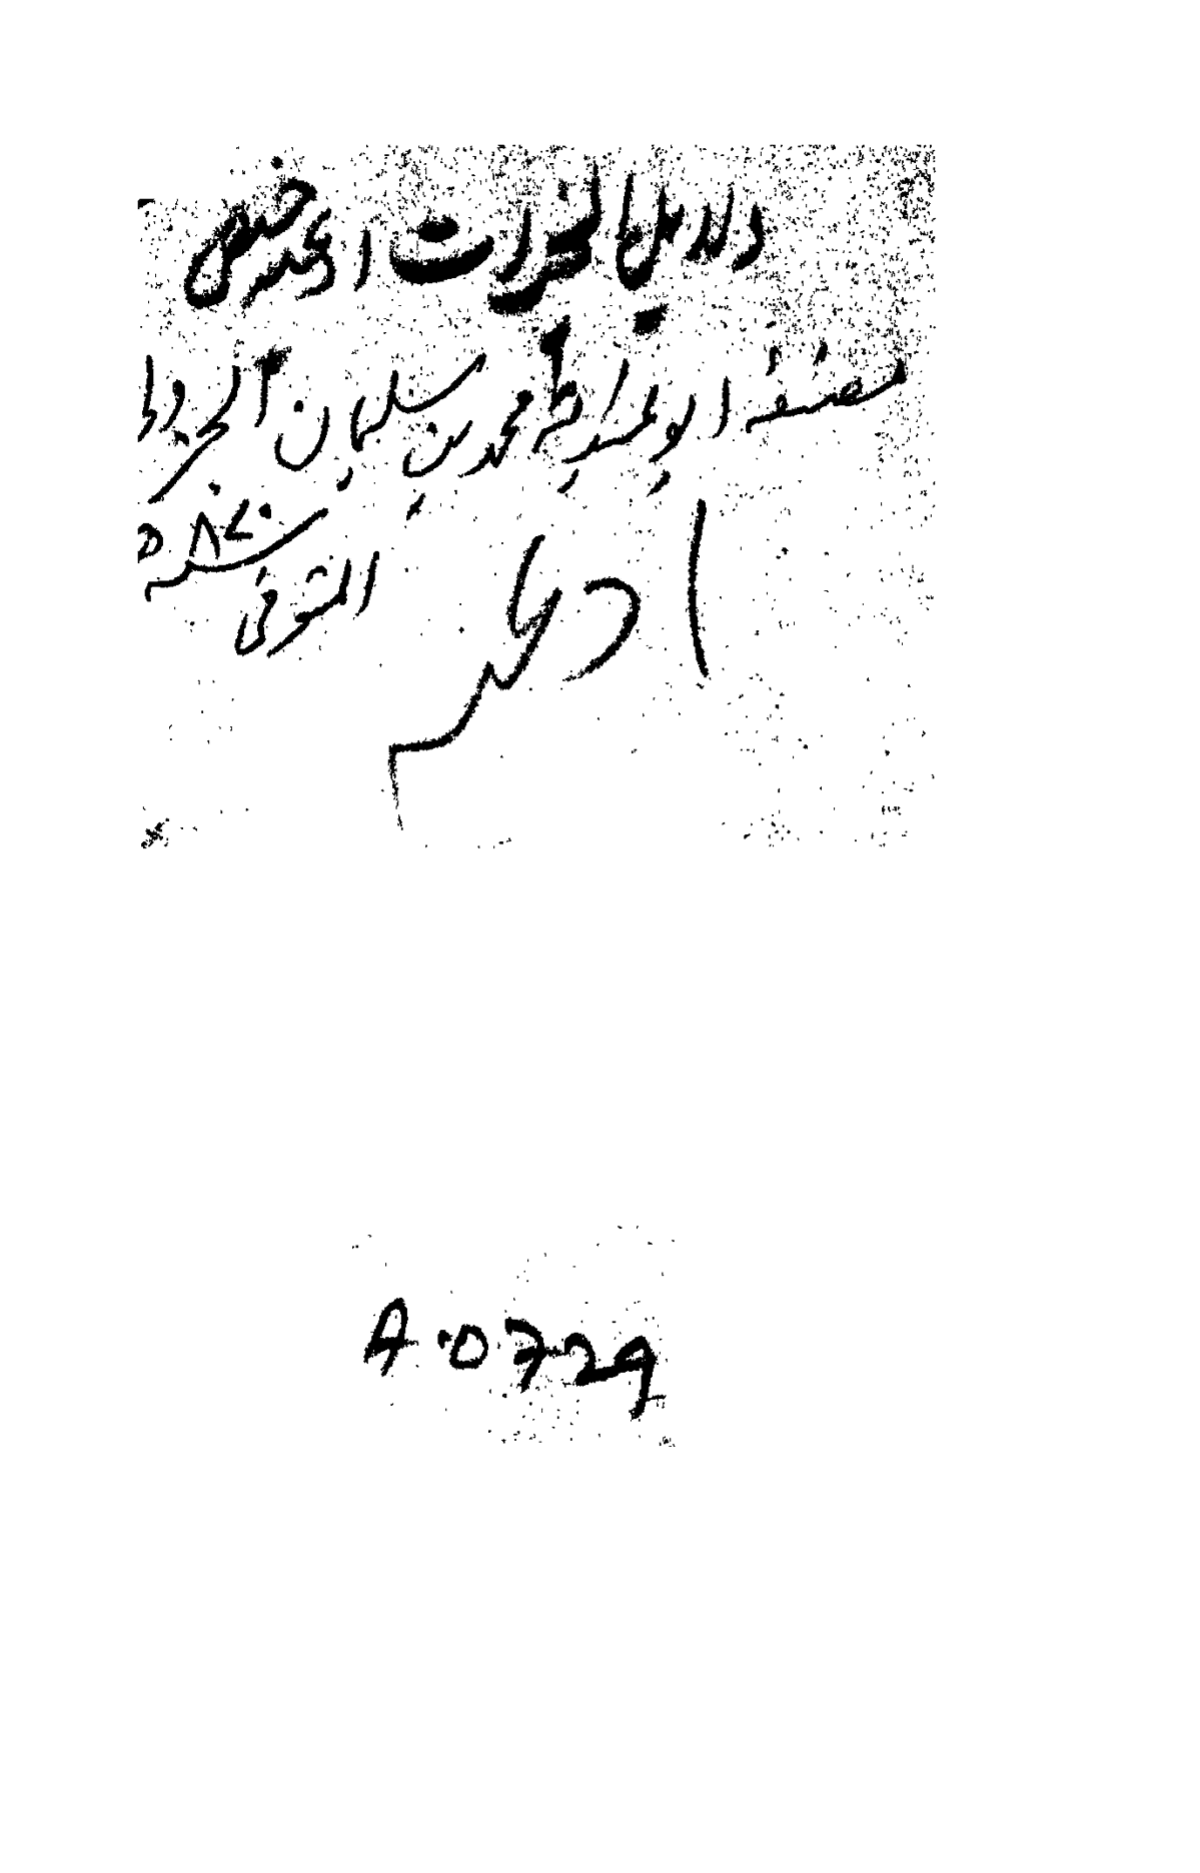 دلایل الخیرات ادعیہ
مصنفہ ابو عبد اللہ محمد بن سلیمان الجزولی
المتوفی سنہ ۸۷۰ ھ
ادعیہ
A.0729